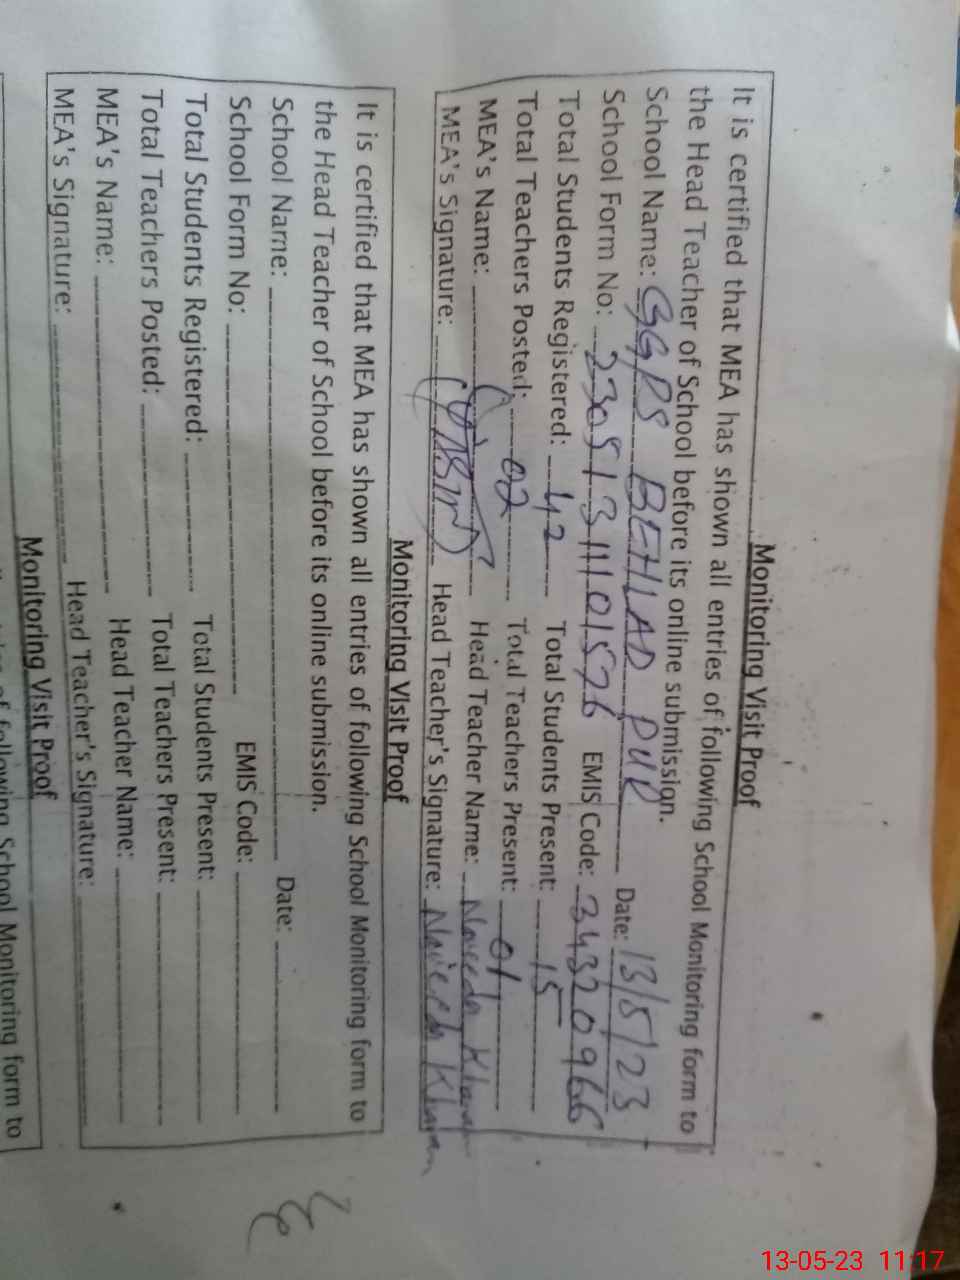 Monitoring Visit Proof
It is certified that MEA has shown all entries of following School Monitoring form to
the Head Teacher of School before its online submission.
School Name: GGPS BEHLAD PUR Date: 13/5/23
School Form No: 23051311101576 EMIS Code: 34320966
Total Students Registered: 42 Total Students Present: 15
Total Teachers Posted: 02 Total Teachers Present: 01
MEA's Name: Head Teacher Name: Naveeda Khanam
MEA's Signature: Head Teacher's Signature: Naveeda Khanam
Monitoring Visit Proof
It is certified that MEA has shown all entries of following School Monitoring form to
the Head Teacher of School before its online submission.
School Name: Date:
School Form No: EMIS Code:
Total Students Registered: Total Students Present:
Total Teachers Posted: Total Teachers Present:
MEA's Name: Head Teacher Name:
MEA's Signature: Head Teacher's Signature:
Monitoring Visit Proof
of following School Monitoring form to
13-05-23 11:17